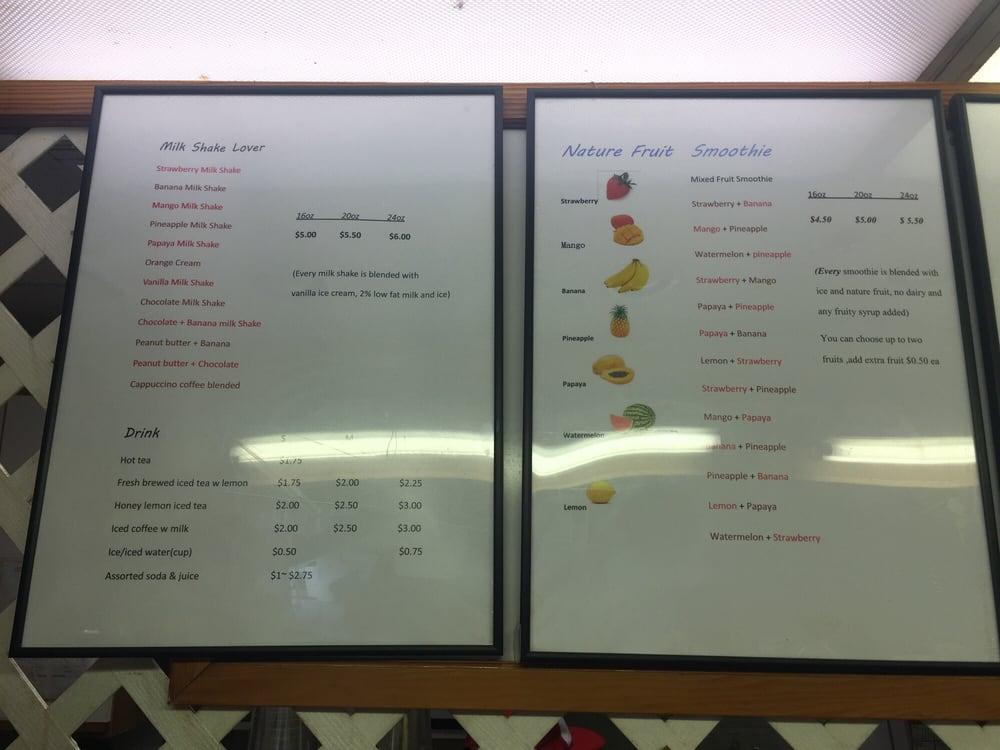 Milk Shake Lover
Strawberry Milk Shake
Banana Milk Shake
Mango Milk Shake
Pineapple Milk Shake
Papaya Milk Shake
Orange Cream
Vanilla Milk Shake
Chocolate Milk Shake
Chocolate + Banana milk Shake
Peanut butter + Banana
Peanut butter + Chocolate
Cappuccino coffee blended
16oz 20oz 24oz
$5.00 $5.50 $6.00
(Every milk shake is blended with
vanilla ice cream, 2% low fat milk and ice)
Drink
S M
Hot tea $1.75
Fresh brewed iced tea w lemon $1.75 $2.00 $2.25
Honey lemon iced tea $2.00 $2.50 $3.00
Iced coffee w milk $2.00 $2.50 $3.00
Ice/iced water(cup) $0.50 $0.75
Assorted soda & juice $1~$2.75
Nature Fruit Smoothie
Strawberry
Mango
Banana
Pineapple
Papaya
Watermelon
Lemon
Mixed Fruit Smoothie
Strawberry + Banana
Mango + Pineapple
Watermelon + pineapple
Strawberry + Mango
Papaya + Pineapple
Papaya + Banana
Lemon + Strawberry
Strawberry + Pineapple
Mango + Papaya
Banana + Pineapple
Pineapple + Banana
Lemon + Papaya
Watermelon + Strawberry
16oz 20oz 24oz
$4.50 $5.00 $ 5.50
(Every smoothie is blended with
ice and nature fruit, no dairy and
any fruity syrup added)
You can choose up to two
fruits ,add extra fruit $0.50 ea